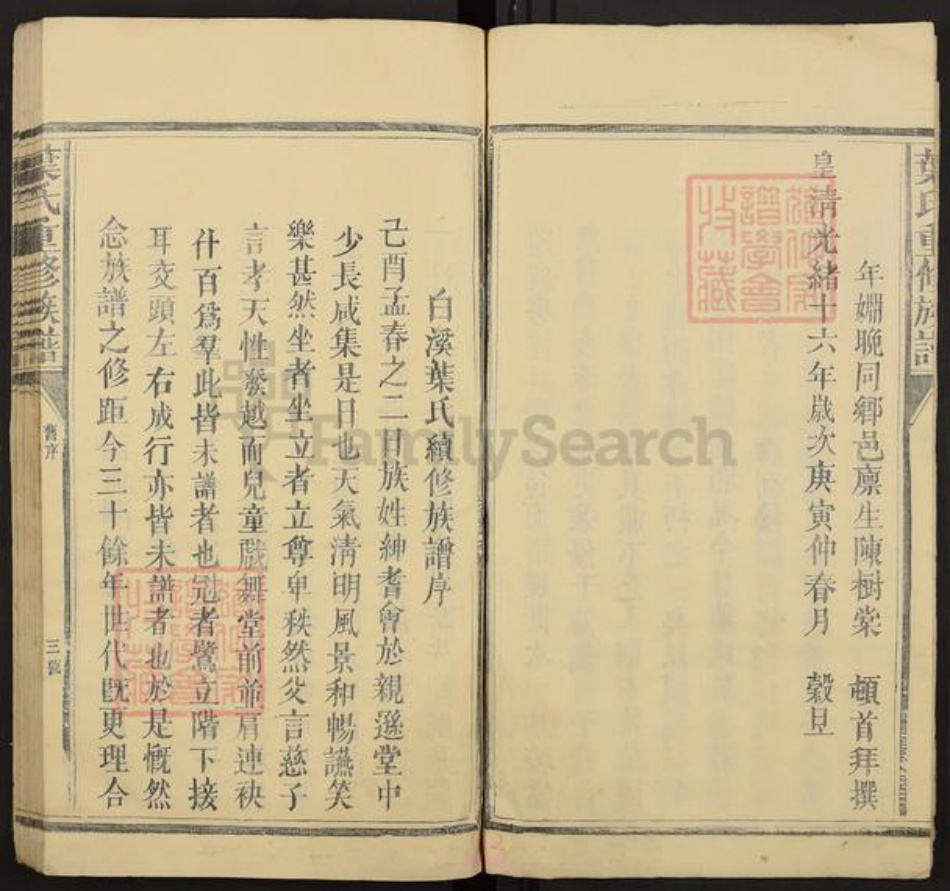 葉氏重修族譜
年姻晚同鄉邑廩生陳樹棠 頓首拜撰
皇清光緒十六年歲次庚寅仲春月 穀旦
白溪葉氏續修族譜序
己酉孟春之二日族姓紳耆會於親遜堂中
少長咸集是日也天氣清明風景和暢讌笑
樂甚然坐者坐立者立尊卑秩然父言慈子
言孝天性發越而兒童戲舞堂前並肩連袂
什百爲羣此皆未譜者也冠者鷺立階下接
耳交頭左右成行亦皆未譜者也於是慨然
念族譜之修距今三十餘年世代既更理合
葉氏重修族譜
舊序
三
FamilySearch